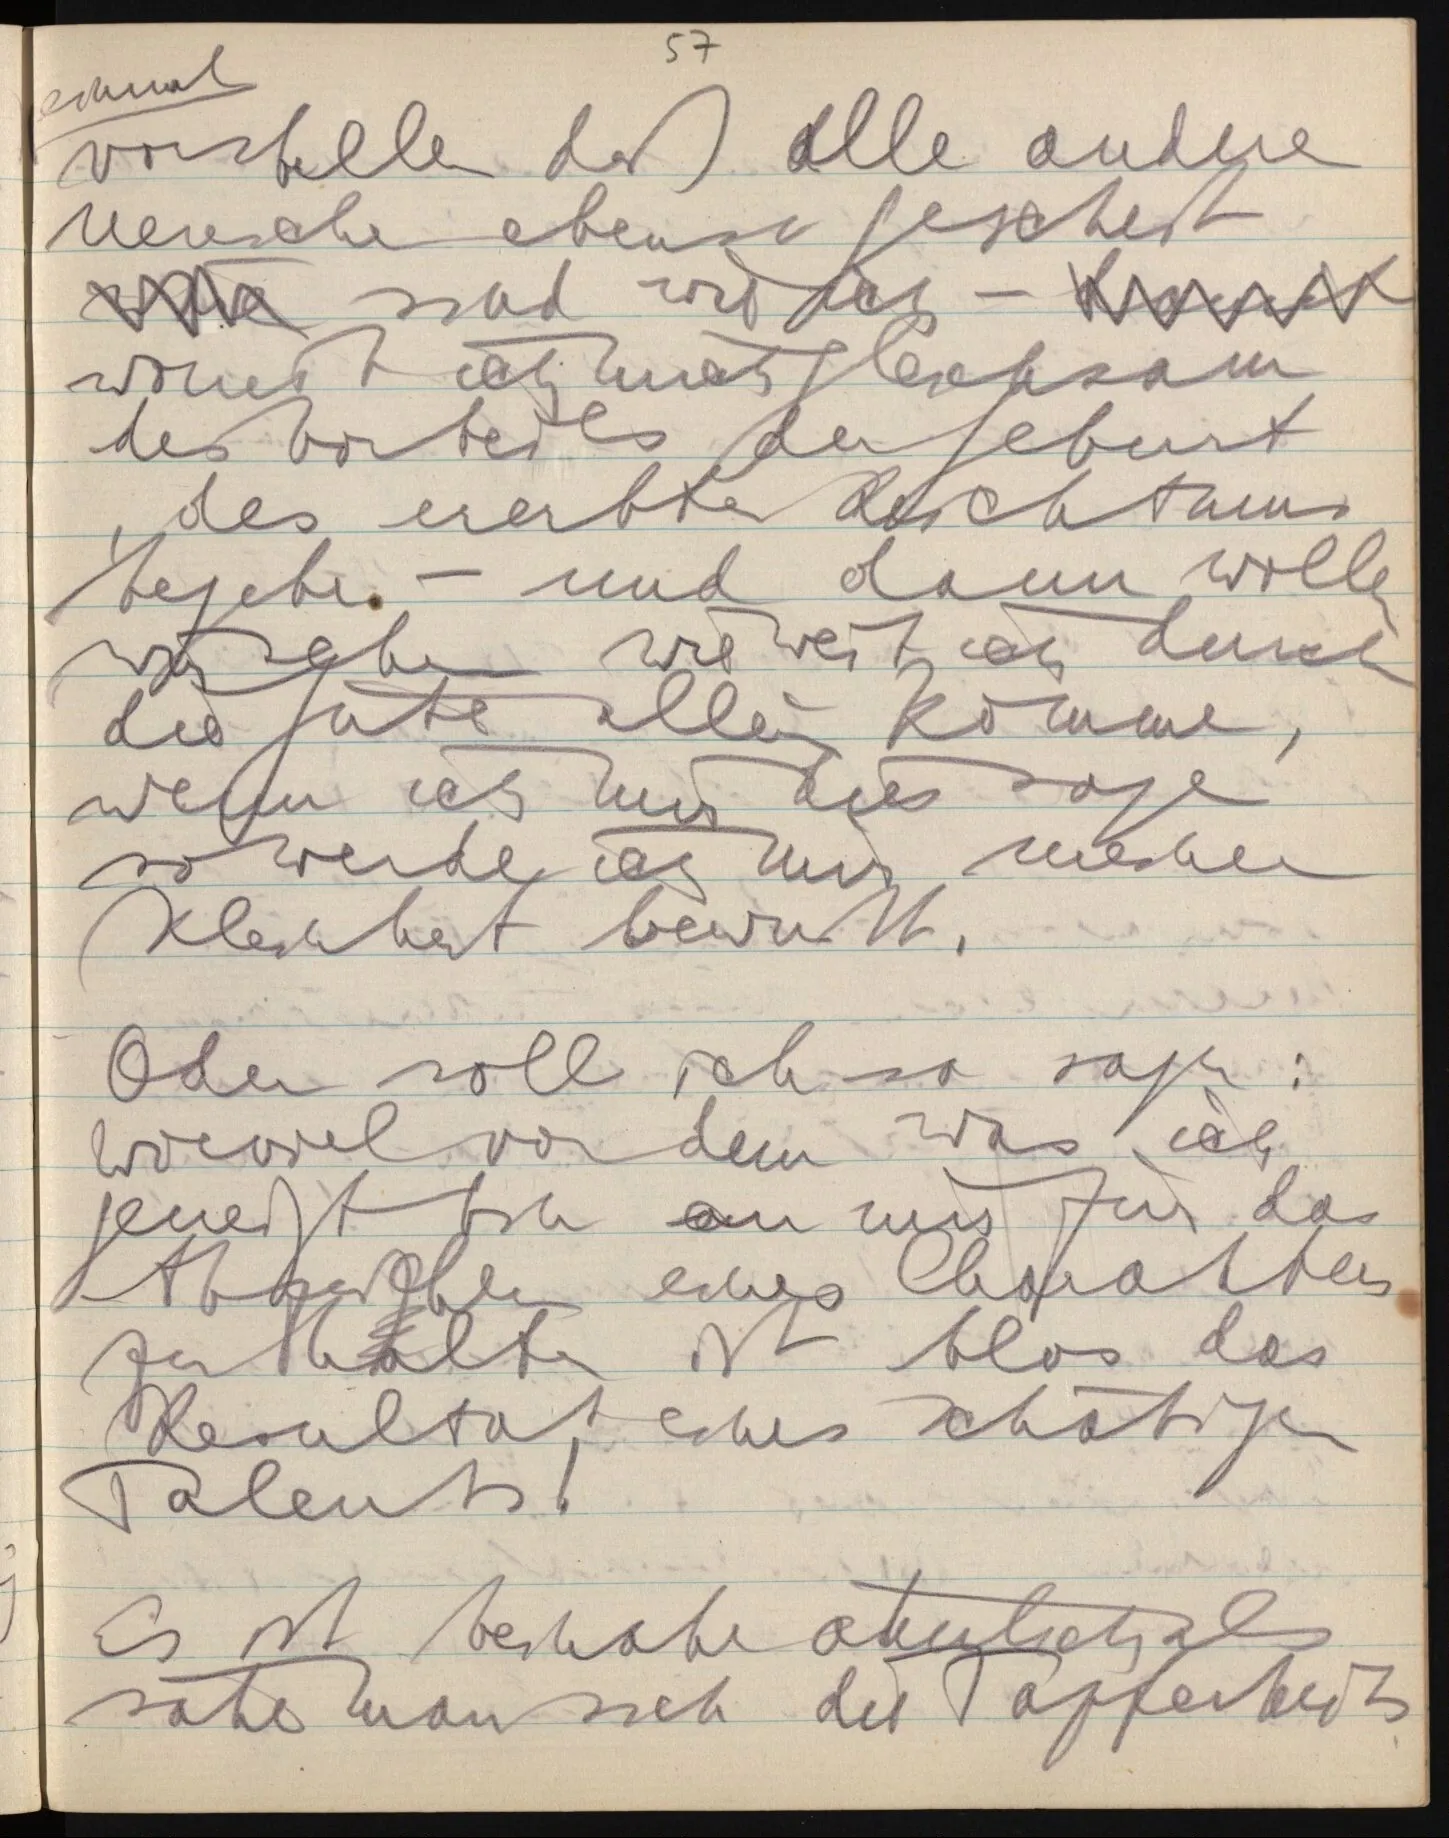 57
einmal
vorstelle daß alle andere
Mensche ebenso gescheit
sind wie ich –
womit ich mich gleichsam
des Vorteils der Geburt
, des ererbten Reichtums
begebe. – und dann wollen
wir sehen wie weit ich durch
die Güte allein komme,
wenn ich mir dies sage
so werde ich mir meiner
Kleinheit bewußt.

Oder soll ich so sagen:
wieviel von dem was ich
geneigt bin an mir für das
Abzeichen eines Charakters
zu halten ist blos das
Resultat eines schäbigen
Talents!

Es ist beinahe ähnlich als
sähe man sich die Tapferkeits